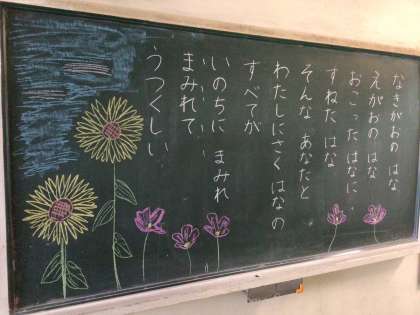 なきがおの はな
えがおの はな
おこった はなに、
すねた はな
そんな あなたと
わたしにさく はなの
すべてが
いのちに まみれ
まみれて
うつくしい